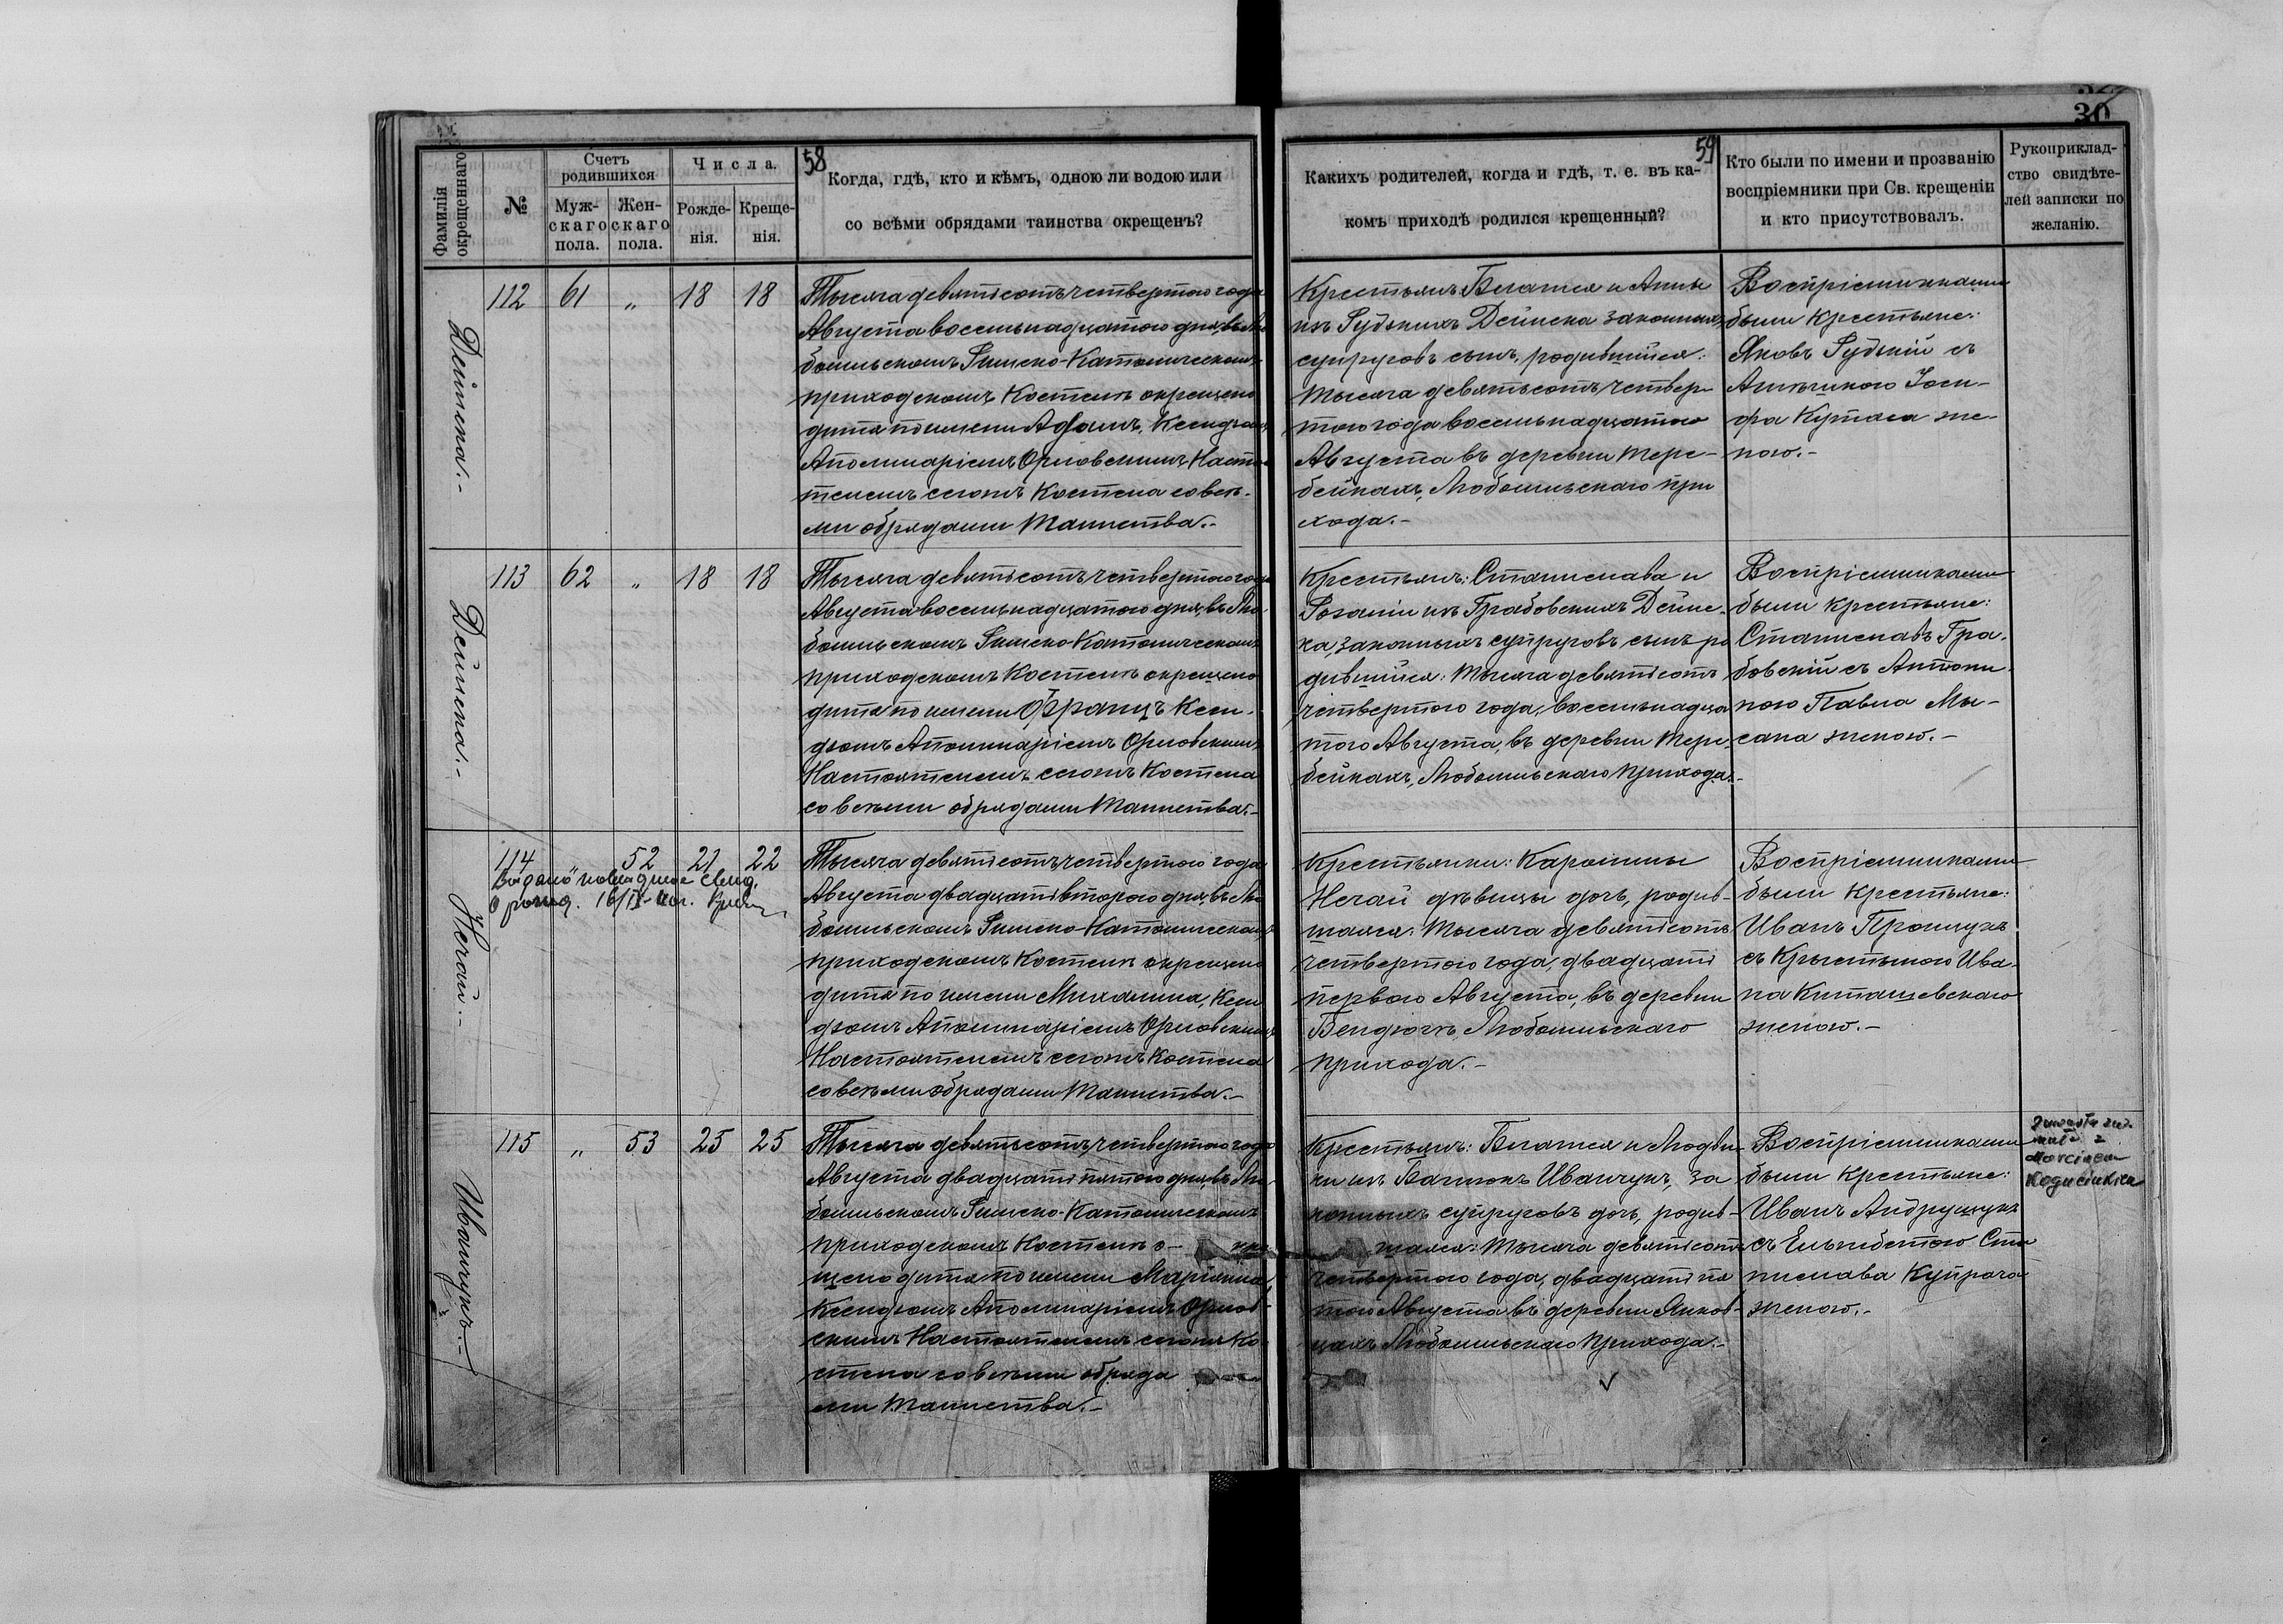 30
58
59
Фамилія окрещеннаго
№
Счетъ родившихся
Муж-скаго пола.
Жен-скаго пола.
Числа.
Рожде-нія.
Креще-нія.
Когда, гдѣ, кто и кѣмъ, одною ли водою или
со всѣми обрядами таинства окрещенъ?
Какихъ родителей, когда и гдѣ, т. е. въ ка-
комъ приходѣ родился крещенный?
Кто были по имени и прозванію
воспріемники при Св. крещеніи
и кто присутствовалъ.
Рукоприклад-
ство свидѣте-
лей записки по
желанію.
Дейнека.-
112 61 „ 18 18
Тысяча девятьсотъ четвертого года
Августа восемьнадцатого дня, въ Лю
бомльскомъ Римско-Католическомъ
приходскомъ Костелѣ окрещено
дитя по имени Адамъ, Ксендзомъ
Аполинаріемъ Орловскимъ Насто
телемъ сегожъ Костела со всѣ-
ми обрядами Таинства.-
Крестьянъ Блажея и Анны
изъ Рудзкихъ Дейнека законныхъ
супруговъ сынъ, родившійся:
тысяча девятьсотъ четвер-
того года восемьнадцатого
Августа въ деревни Тере-
бейкахъ, Любомльскаго при
хода.-
Воспріемниками
были крестьяне:
Яковъ Рудзкій съ
Ioси-
фа Куташа же-
ною.-
Дейнека.-
113 62 „ 18 18
Тысяча девятьсотъ четвертого года
Августа восемьнадцатого дня, въ Лю
бомльскомъ Римско-Католическомъ
приходскомъ Костелѣ окрещено
дитя по имени Францъ Ксен-
дзомъ Аполинаріемъ Орловскимъ
Настоятелемъ сегожъ Костела
со всѣми обрядами Таинства.-
Крестьянъ: Станислава и
Розаліи изъ Грабовскихъ Дейне-
ка, законныхъ супруговъ сынъ ро
дившійся: тысяча девятьсотъ
четвертого года, восемьнадца
того Августа, въ деревни Тере-
бейкахъ, Любомльскаго прихода.-
Воспріемниками
были крестьяне:
Станиславъ Гра-
бовскій съ Антони-
ною Павла Мы-
сака женою.-
Нечай.-
114 „ 52 21 22
Выдано
о рожд. 16/IV
Тысяча девятьсотъ четвертого года
Августа двадцать второго дня, въ Лю
бомльскомъ Римско-Католическомъ
приходскомъ Костелѣ окрещено
дитя по имени Михалина, Ксен
дзомъ Аполинаріемъ Орловскимъ
Настоятелемъ сегожъ Костела
со всѣми обрядами Таинства.-
Крестьянки: Каролины
Нечай дѣвицы дочь, родив-
шаяся: тысяча девятьсотъ
четвертого года, двадцать
первого Августа, въ деревни
Бендюгѣ, Любомльскаго
прихода.-
Воспріемниками
были крестьяне:
Иванъ
съ Крыстыною Ива-
на Киташевскаго
женою.-
Иванчукъ.-
115 „ 53 25 25
Тысяча девятьсотъ четвертого года
Августа двадцать пятого дня, въ Лю
бомльскомъ Римско-Католическомъ
приходскомъ Костелѣ о- кре
щено дитя по имени Маріянна,
Ксендзомъ Аполинаріемъ Орлов-
скимъ Настоятелемъ сегожъ Ко-
стела со всѣми обряда
ми Таинства.-
Крестьянъ: Блажея и Людви
ки изъ Иванчукъ, за
конныхъ супруговъ дочь, родив-
шаяся: тысяча девятьсотъ
четвертого года, двадцать пя
того Августа въ деревни Янков-
цахъ Любомльскаго прихода.-
Воспріемниками
были крестьяне:
Иванъ Андрущукъ
съ Ельжбетою Ста
нислава
женою.-
Zawarła zw.
małż. z
Marcinem